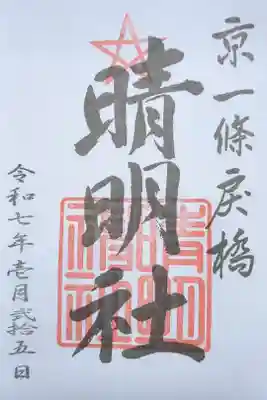 京一條戻橋
晴明社
令和七年壱月弐拾五日
晴明
神社